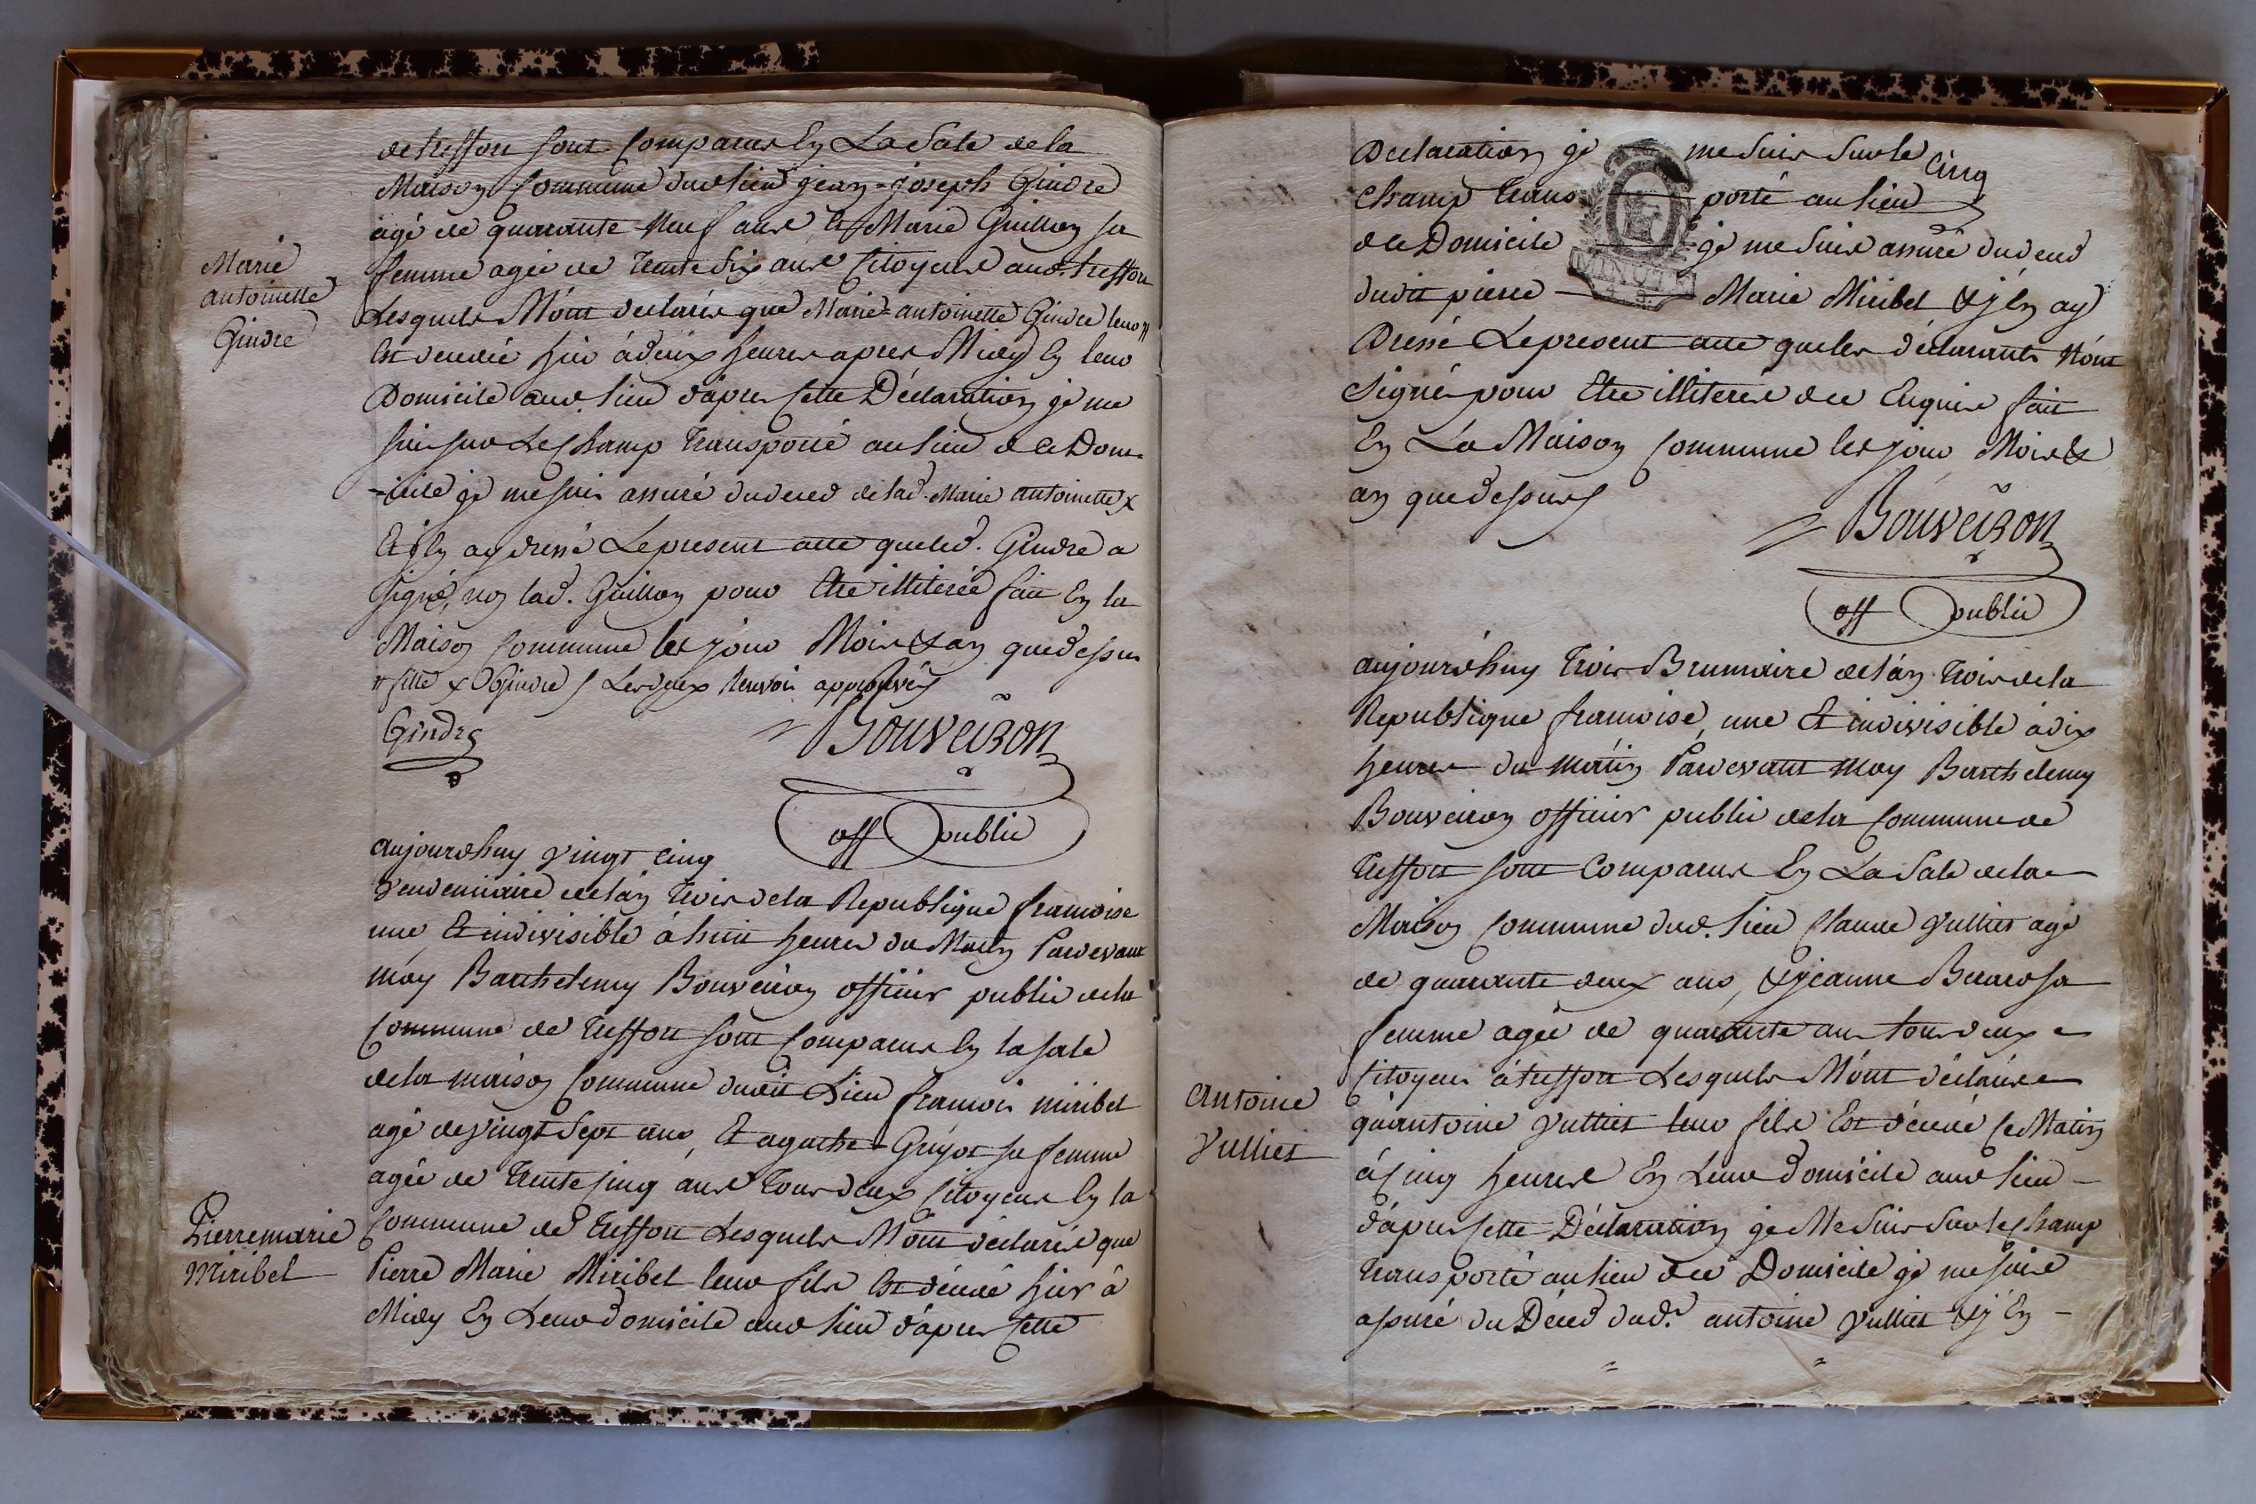 de treffort sont comparus En La Sale de la
Maison Commune dud. lieu jean-joseph Gindre
agé de quarante Neuf ans et Marie Guillon sa
Marie
antoinette
Gindre
femme agée de trente Six ans Citoyens aud. treffort
Lesquels M'ont declarés que Marie-antoinette Gindre leur #
Est decedée hier à deux heures apres Midy En leur
Domicile aud. lieu d'apres Cette Déclaration je me
suis sur Le Champ transporté au lieu de ce Dom-
-icile je me suis assuré du deced de lad. Marie antoinette x
Et j'En ay dressé Le present acte que led. Gindre a
signé, non lad. Guillon pour Etre illiterée fait En la
Maison Commune les jour Mois & an que dessus
# fille x Gindre / Les deux Renvois approuvés
Gindre
Bouveiron
off public
aujourdhuy vingt cinq
Vendemiaire de l'an trois de la Republique francoise
une Et indivisible à huit heures du Matin Pardevant
moy Barthelemy Bouveiron officier public de la
Commune de treffort sont comparus En la sale
de la maison Commune dudit Lieu francois miribel
agé de vingt Sept ans, Et agathe Guyot sa femme
agée de trente cinq ans tous deux Citoyens En la
Pierre marie
Miribel
Commune de treffort Lesquels M'ont déclarés que
Pierre Marie Miribel leur fils Est décedé hier à
Midy En Leur domicile aud lieu d'apres Cette
Declaration je me suis sur le
Cinq
Champ trans porté au lieu
de ce Domicile je me suis assuré du deced
MINUTE
dudit pierre Marie Miribel & j'En ay
Dressé Le present acte que les déclarants N'ont
signés pour Etre illiterés de ce Enquis fait
En La Maison Commune les jour Mois &
an que dessus
Bouveiron
off public
aujourdhuy trois Brumaire de l'an trois de la
Republique francoise, une Et indivisible à dix
heures du matin Pardevant moy Barthelemy
Bouveiron officier public de la Commune de
treffort sont Comparus En La Sale de la
Maison Commune dud. lieu Claude Vulliet agé
de quarante deux ans, & jeanne sa
femme agée de quarante ans tous deux
Citoyens à treffort Lesquels M'ont déclarés
Antoine
Vulliet
qu'antoine Vulliet leur fils Est décedé Ce Matin
à Cinq heures En Leur domicile aud lieu
d'apres Cette Déclaration je Me Suis Sur le Champ
transporté au lieu de ce Domicile je me suis
assuré du Déced dud. antoine Vulliet & j'En